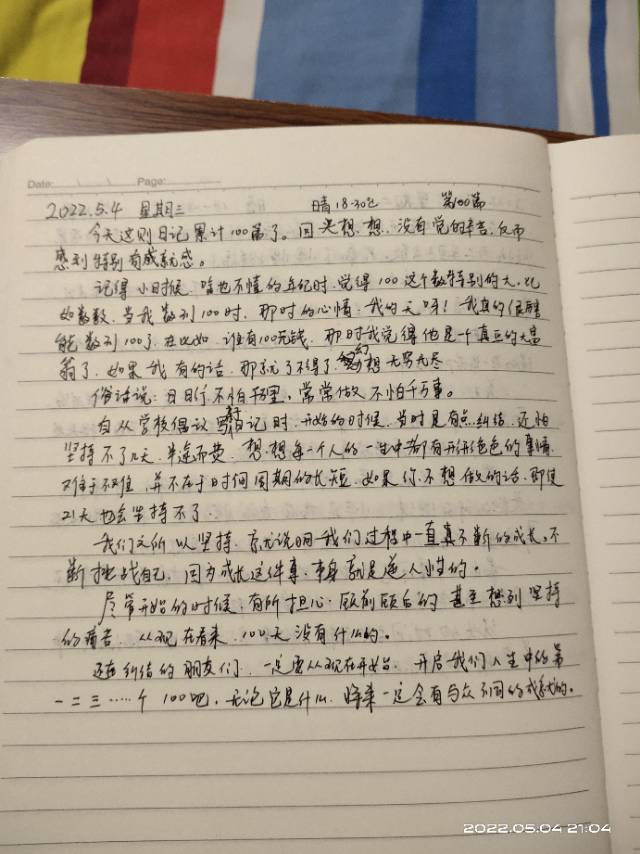 Date: Page:
2022.5.4 星期三 晴 18-30℃ 第100篇
今天这则日记累计100篇了。回头想想,没有觉的辛苦,反而
感到特别有成就感。
记得小时候,啥也不懂的年纪时,觉得100这个数特别的大,比
如数数,当我数到100时,那时的心情,我的天呀!我真的很
能数到100了.在比如,谁有100元钱,那时我觉得他是一个真正的大富
翁了,如果我有的话,那就了不得了,幻想无穷无尽
俗话说:日日行不怕千万里,常常做不怕千万事。
自从学校倡议写日记时,开始的时候,当时是有点纠结,还怕
坚持不了几天,半途而费,想想每一个人的一生中都有形形色色的事情
难于不难,并不在于时间周期的长短,如果你不想做的话,即使
21天也会坚持不了.
我们之所以坚持,就说明我们过程中一直真不断的成长,不
断挑战自己,因为成长这件事,本身就是逆人性的。
尽管开始的时候,有所担心,顾前顾后的 甚至想到坚持
的痛苦,从现在看来,100天没有什么的。
还在纠结的朋友们,一定要从现在开始,开启我们人生中的第
一二三……个100吧,无论它是什么,将来一定会有与众不同的成就的。
2022.05.04 21:04